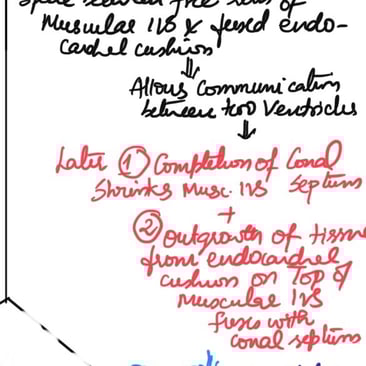 Space between free rim of
Muscular IVS & fused endo-
cardial cushion
Allows Communication
between two Ventricles
Later ① Completion of Conal
Shrinks Musc. IVS Septum
+
② Outgrowth of tissue
from endocardial
cushion on Top of
Muscular IVS
fuses with
conal septum